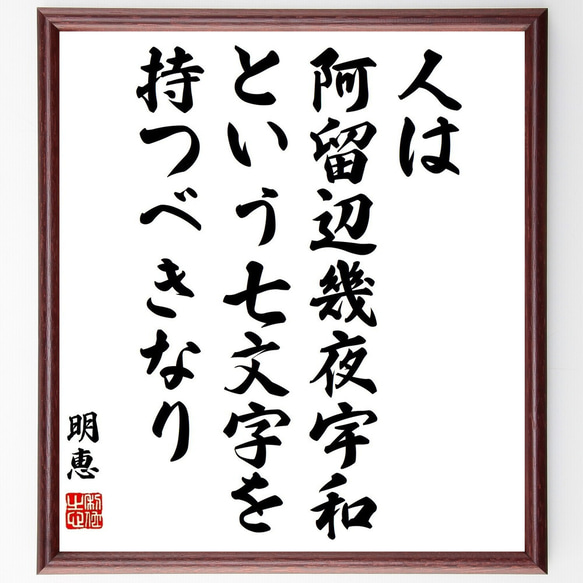 人は
阿留辺幾夜宇和
という七文字を
持つべきなり
明恵